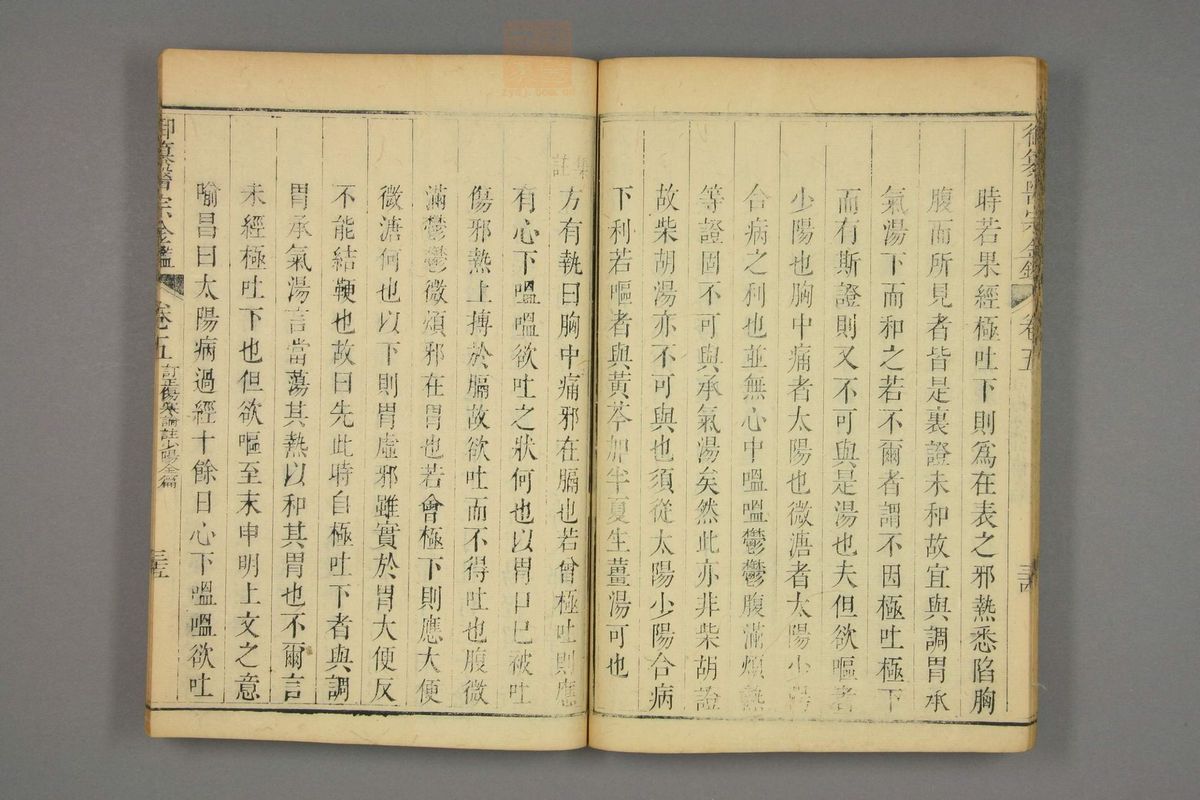 御纂醫宗金鑑 卷五 三十四
時若果經極吐下則爲在表之邪熱悉陷胸
腹而所見者皆是裏證未和故宜與調胃承
氣湯下而和之若不爾者謂不因極吐極下
而有斯證則又不可與是湯也夫但欲嘔者
少陽也胸中痛者太陽也微溏者太陽少陽
合病之利也並無心中嗢嗢鬱鬱腹滿煩熱
等證固不可與承氣湯矣然此亦非柴胡證
故柴胡湯亦不可與也須從太陽少陽合病
下利若嘔者與黃芩加半夏生薑湯可也
集註
方有執曰胸中痛邪在膈也若曾極吐則應
有心下嗢嗢欲吐之狀何也以胃口已被吐
傷邪熱上搏於膈故欲吐而不得吐也腹微
滿鬱鬱微煩邪在胃也若曾極下則應大便
微溏何也以下則胃虛邪雖實於胃大便反
不能結鞕也故曰先此時自極吐下者與調
胃承氣湯言當蕩其熱以和其胃也不爾言
未經極吐下也但欲嘔至末申明上文之意
喻昌曰太陽病過經十餘日心下嗢嗢欲吐
御纂醫宗金鑑 卷五 訂正傷寒論註少陽全篇 三十五